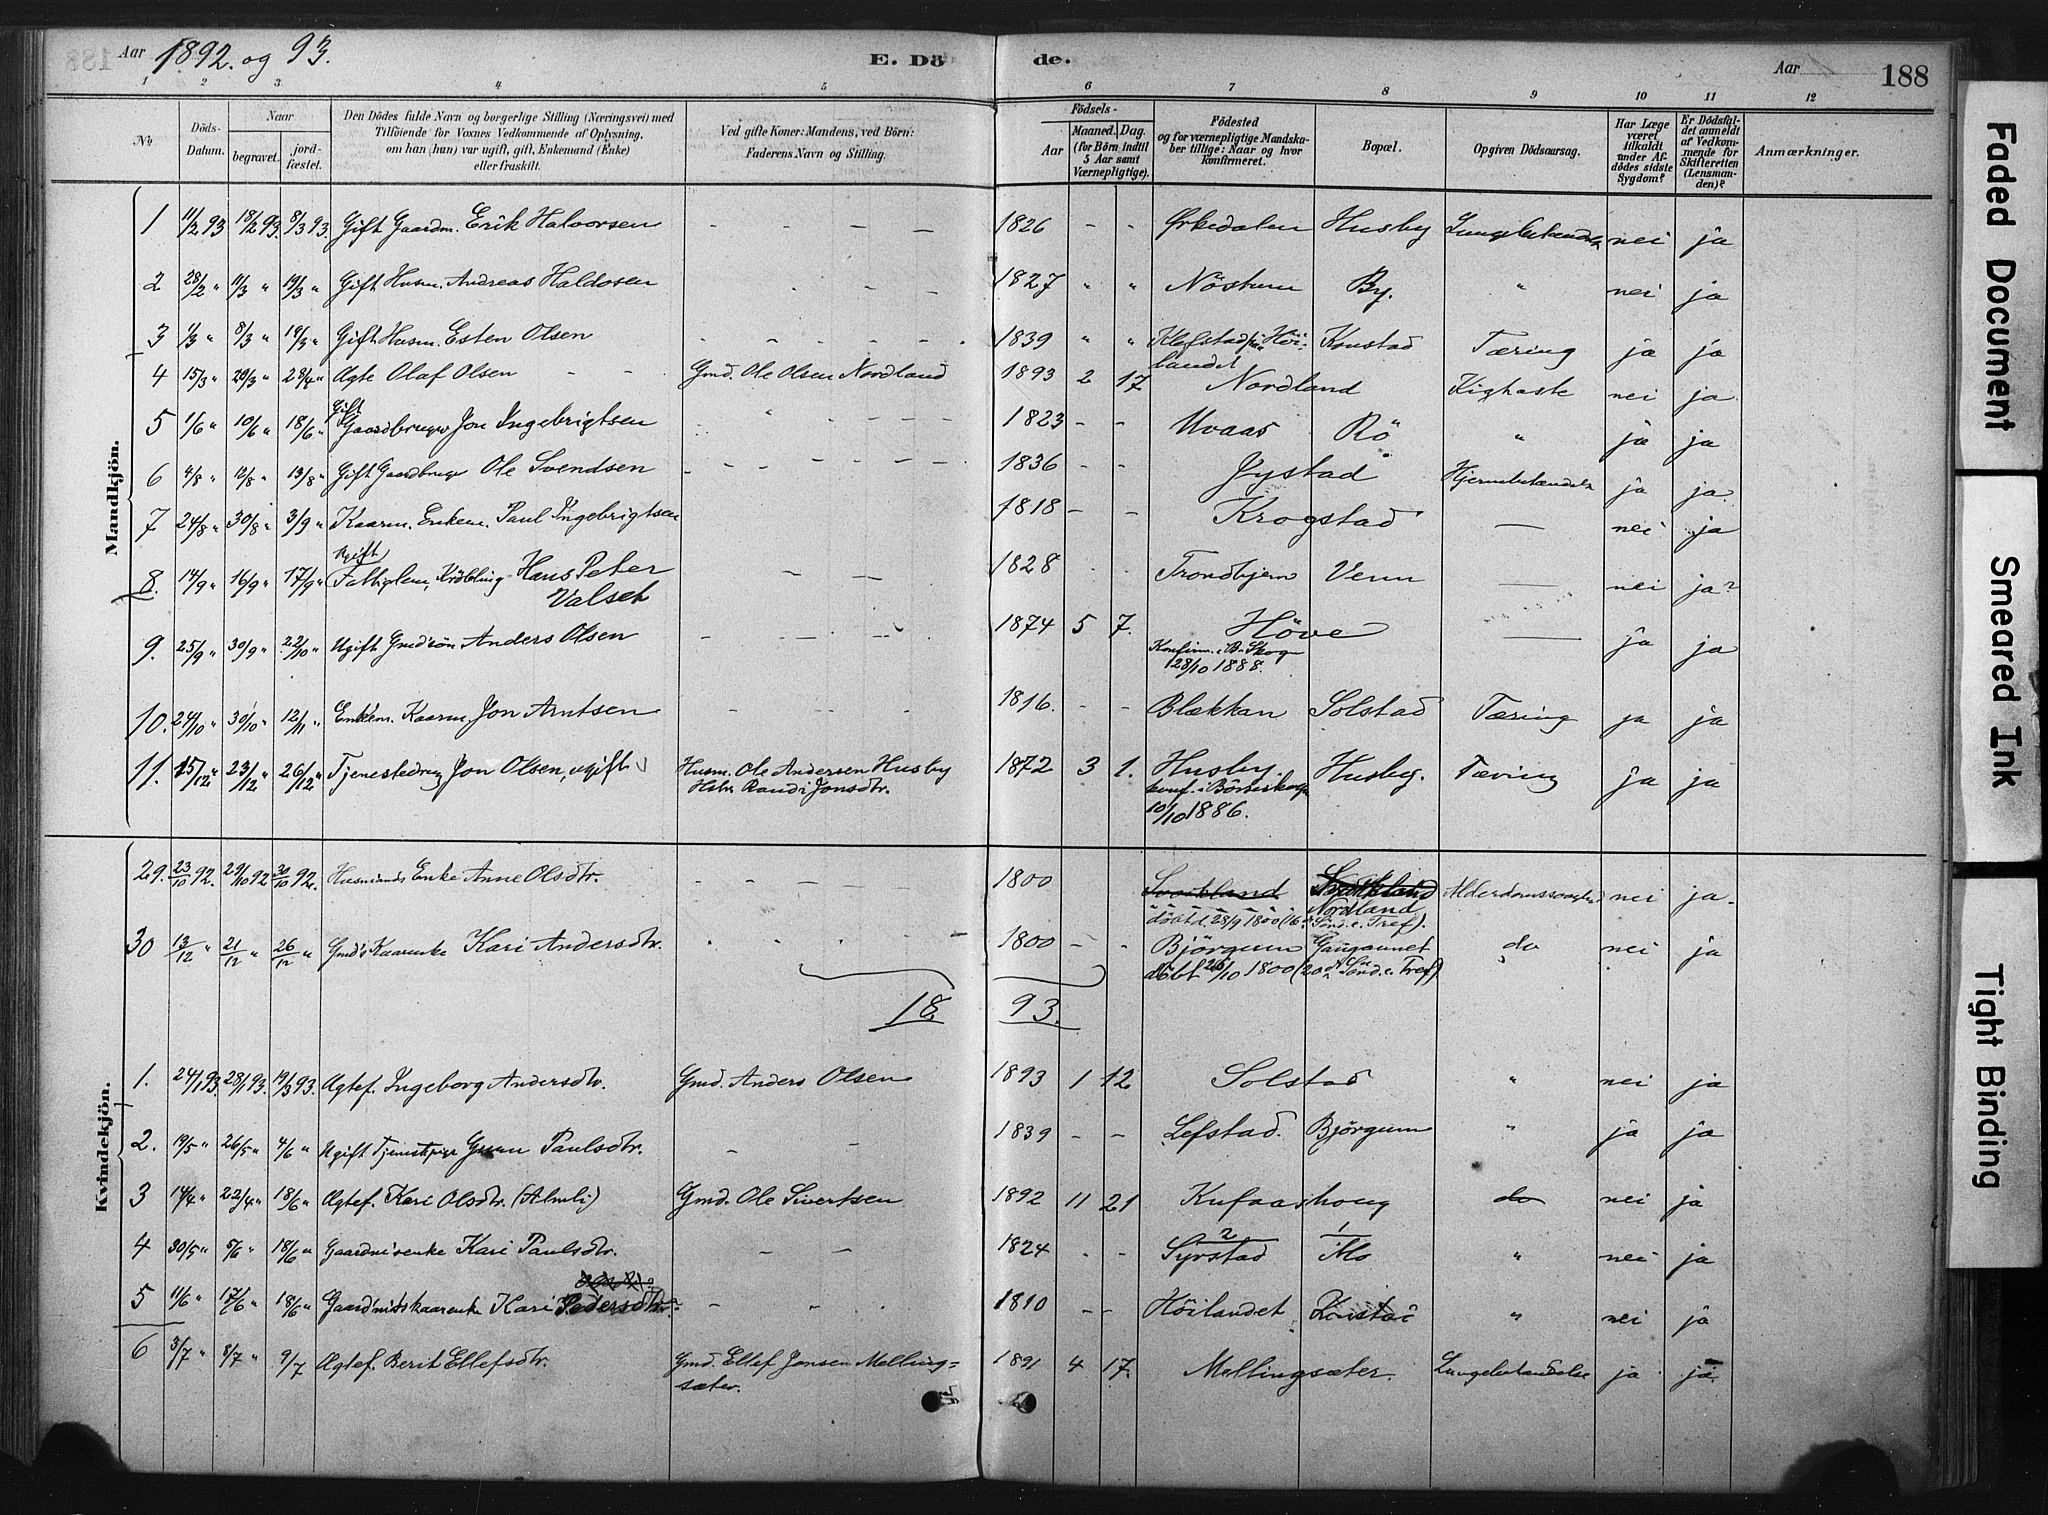 Aar 1892. og 93.
E. Dö de.
Aar
188
1 2 3 4 5 6 7 8 9 10 11 12
№
Döds-Datum.
Naar
begravet.
jord-fæstet.
Den Dödes fulde Navn og borgerlige Stilling (Næringsvei) med
Tilföiende for Voxnes Vedkommende af Oplysning,
om han (hun) var ugift, gift, Enkemand (Enke)
eller fraskilt.
Ved gifte Koner: Mandens, ved Börn:
Faderens Navn og Stilling.
Födsels-
Aar
Maaned. Dag.
(for Börn indtil
5 Aar samt
Værnepligtige).
Födested
og for værnepligtige Mandska-
ber tillige: Naar og hvor
konfirmeret.
Bopæl.
Opgiven Dödsaarsag.
Har Læge
været
tilkaldt
under Af-
dödes sidste
Sygdom?
Er Dödsfal-
det anmeldt
af Vedkom-
mende for
Skifteretten
(Lensman-
den)?
Anmærkninger.
Mandkjön.
1 11/2 93 18/2 93. 8/3 93. Gift Gaardm. Erik Halvorsen - - - - 1826 - - Ørkedalen Husby nei ja
2 28/2 " 11/3 " 19/3 " Gift Husm. Andreas Haldosen - - - 1827 " " Nöstum By. " nei ja
3 1/3 " 8/3 " 19/3 " Gift Husm. Esten Olsen - - - - 1839 " " Tæring ja ja
4 15/3 " 29/3 " 28/4 " Ægte Olaf Olsen - - Gmd. Ole Olsen Nordland 1893 2 17 Nordland Kighoste nei ja.
5 1/6 " 10/6 " 18/6 " Gift Gaardbruger Jon Ingebrigtsen - - - 1823 - - Uvaas Rö " ja ja
6 4/8 " 12/8 " 13/8 " Gift Gaardbruger Ole Svendsen - - - - 1836 - - Jystad ja ja.
7. 24/8 " 30/8 " 3/9 " Kaarm. Enkem. Paul Ingebrigtsen 1818 - - Krogstad — nei ja
8. 14/9 " 16/9 " 17/9 " Ugift Hans Peter - - 1828 Trondhjem Venn — nei ja?
Valset
9. 25/9 " 30/9 " 22/10 " Ugift Gmdsön Anders Olsen - - - - 1874 5 7. Höve — ja ja
Konfirm. i B. Skogn
28/10 1888.
10. 24/10 " 30/10 " 12/11 " Enkem. Kaarm. Jon Arntsen - - - 1816. - - Blækkan Solstad Tæring ja ja
11. 15/12 " 23/12 " 26/12 " Tjenestedreng Jon Olsen, ugift Husm. Ole Andersen Husby 1872 3 1. Husby. Husby. Tæring ja ja
Randi Jonsdtr.
10/10 1886.
Kvindekjön.
29. 23/10 92. 29/10 92 30/10 92. Husmands Enke Anne Olsdtr. - - - - 1800 nei ja.
Nordland
döbt d. 28/9 1800 (16 Sönd. e. Tref).
30 13/12 " 21/12 " 26/12 " Gmds Kaarenke Kari Andersdtr. 1800 - - Björgum do nei ja
döbt 26/10 1800 (20de Sönd. e. Tref)
18 93.
1. 24/1 93. 28/1 93. 19/3 93. Ægtef. Ingeborg Andersdtr. Gmd. Anders Olsen 1893 1 12 Solstad " nei ja
2. 19/5 " 26/5 " 4/6 " Ugift Tjenestpige Paulsdtr. - - 1839 - - Lefstad. Björgum " ja ja
3 14/4 " 22/4 " 18/6 " Ægtef. Kari Olsdtr. (Almli) Gmd. Ole Sivertsen 1892 11 21 Kufaashoug do nei ja
4 30/5 " 5/6 " 18/6 " Gaardmsenke Kari Paulsdtr. - - 1824 - - 2 Syrstad 1 Mo " nei ja
5 11/6 " 17/6 " 18/6 " Gaardmdskaarenke Kari Pedersdtr. - - - 1810 - - Höilandet " nei ja
6 3/7 " 8/7 " 9/7 Ægtef. Berit Ellefsdtr. Gmd. Ellef Jonsen Melling- 1891 4 17. Mellingsæter. Lungebetændelse ja ja.
sæter.
Faded Document
Smeared Ink
Tight Binding